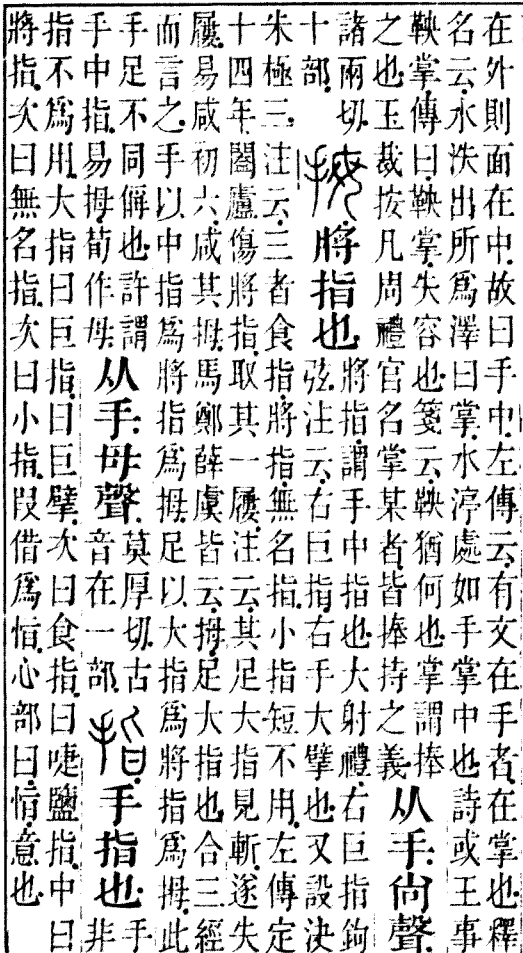 在外則面在中故曰手中左傳云有文在手者在掌也釋
名云水泆出所爲澤曰掌水渟處如手掌中也詩或王事
鞅掌傳曰鞅掌失容也箋云鞅猶何也掌謂捧
之也玉裁按凡周禮官名掌某者皆捧持之義
从手尙聲
諸兩切
十部
拇將指也
將指謂手中指也大射禮右巨指鉤
弦注云右巨指右手大擘也又設決
朱極三注云三者食指將指無名指小指短不用左傳定
十四年闔廬傷將指取其一屨注云其足大指見斬遂失
屨易咸初六咸其拇馬鄭薛虞皆云拇足大指也合三經
而言之手以中指爲將指爲拇足以大指爲將指爲拇此
手足不同偁也許謂
手中指易拇荀作母
从手母聲
莫厚切古
音在一部
指手指也
手
非
指不爲用大指曰巨指曰巨擘次曰食指曰啑鹽指中曰
將指次曰無名指次曰小指叚借爲恉心部曰恉意也